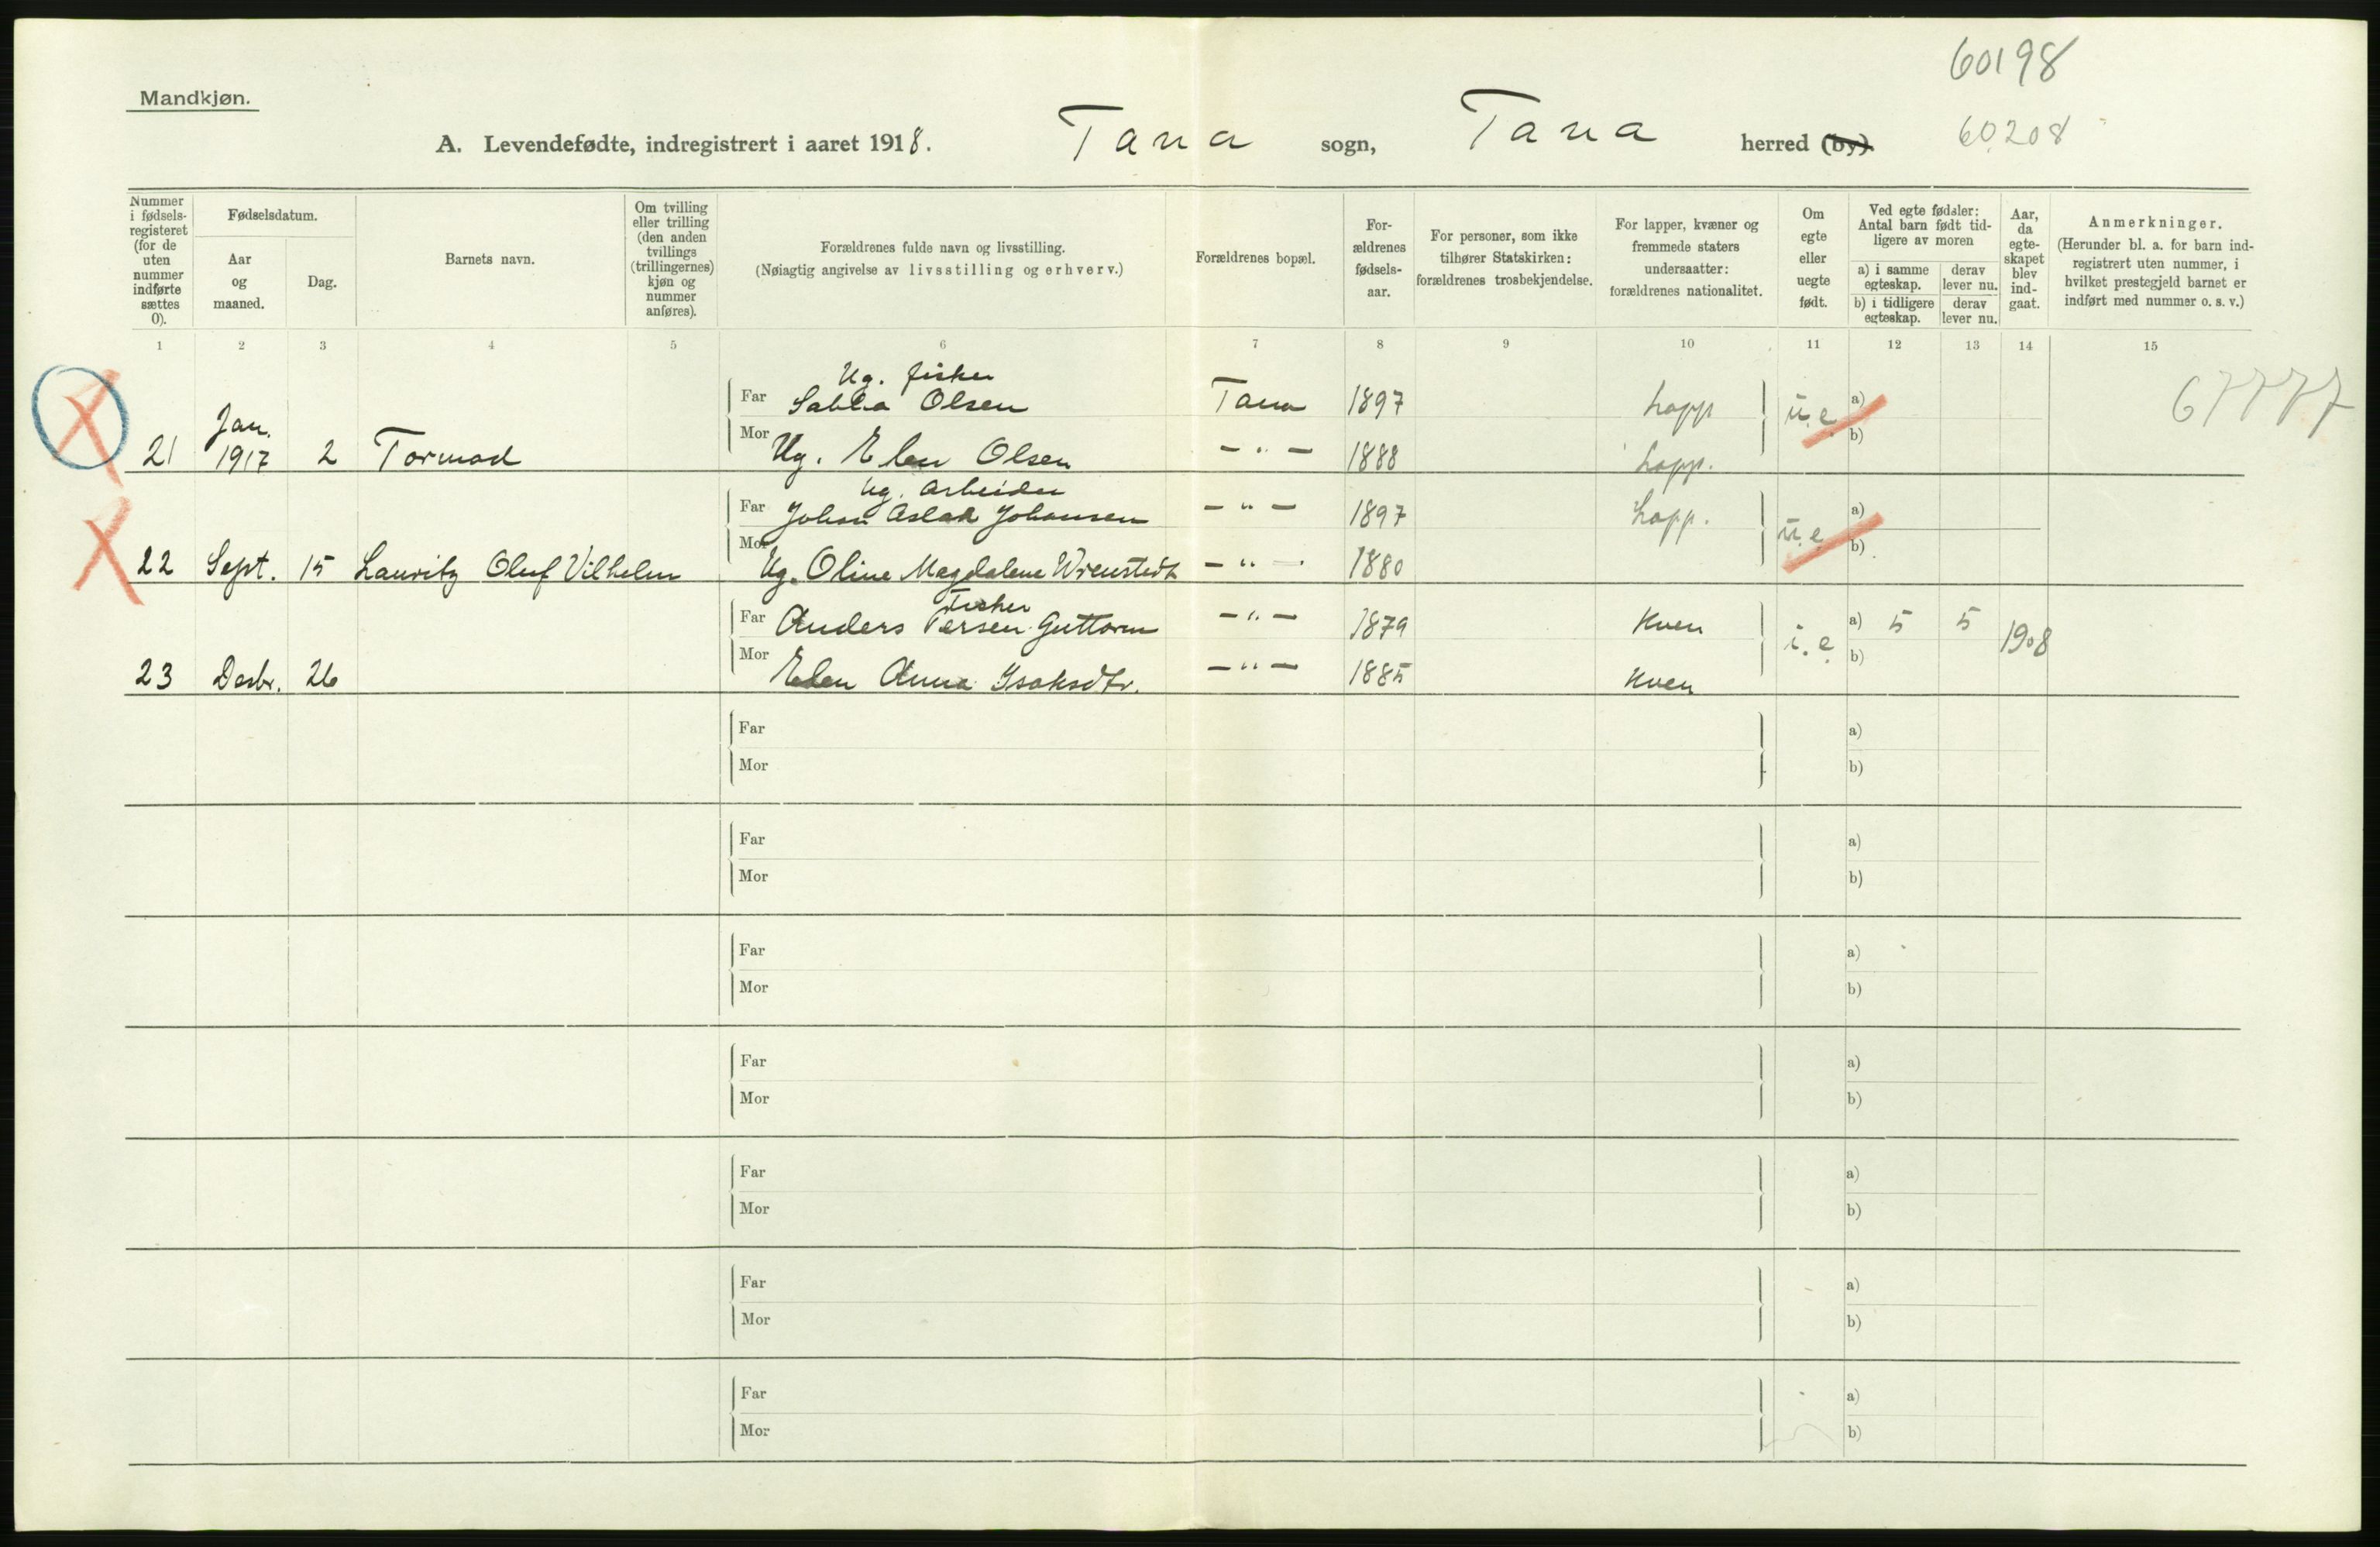 60198
Mandkjøn.
A. Levendefødte, indregistrert i aaret 1918. Tana sogn, Tana herred (by) 60208
Nummer i fødsels-registeret (for de uten nummer indførte sættes 0).
Fødselsdatum.
Aar og maaned.
Dag.
Barnets navn.
Om tvilling eller trilling (den anden tvillings (trillingernes) kjøn og nummer anføres).
Forældrenes fulde navn og livsstilling.
(Nøiagtig angivelse av livsstilling og erhverv.)
Forældrenes bopæl.
For-ældrenes fødsels-aar.
For personer, som ikke tilhører Statskirken: forældrenes trosbekjendelse.
For lapper, kvæner og fremmede staters undersaatter: forældrenes nationalitet.
Om egte eller uegte født.
Ved egte fødsler: Antal barn født tid-ligere av moren
a) i samme egteskap.
derav lever nu.
b) i tidligere egteskap.
derav lever nu.
Aar, da egte-skapet blev ind-gaat.
Anmerkninger.
(Herunder bl. a. for barn ind-registrert uten nummer, i hvilket prestegjeld barnet er indført med nummer o. s. v.)
1 2 3 4 5 6 7 8 9 10 11 12 13 14 15
Ug. fisker
Far Olsen Tana 1897 Lapp a) 67777
21 Jan. 1917 2 Tormod Mor Ug. Elen Olsen — " — 1888 Lapp. u.e. b)
Ug. Arbeider
Far Johan Aslak Johansen — " — 1897 Lapp. a)
22 Sept. 15 Lauritz Oluf Vilhelm Mor Ug. Oline Magdalene Wrenstedt — " — 1880 u.e. b)
Fisker
Far Anders Persen Guttorm — " — 1879 Kven a) 5 5 1908
23 Desbr. 26 Mor Elen Anna Isaksdtr. — " — 1885 Kven i.e. b)
Far a)
Mor b)
Far a)
Mor b)
Far a)
Mor b)
Far a)
Mor b)
Far a)
Mor b)
Far a)
Mor b)
Far a)
Mor b)